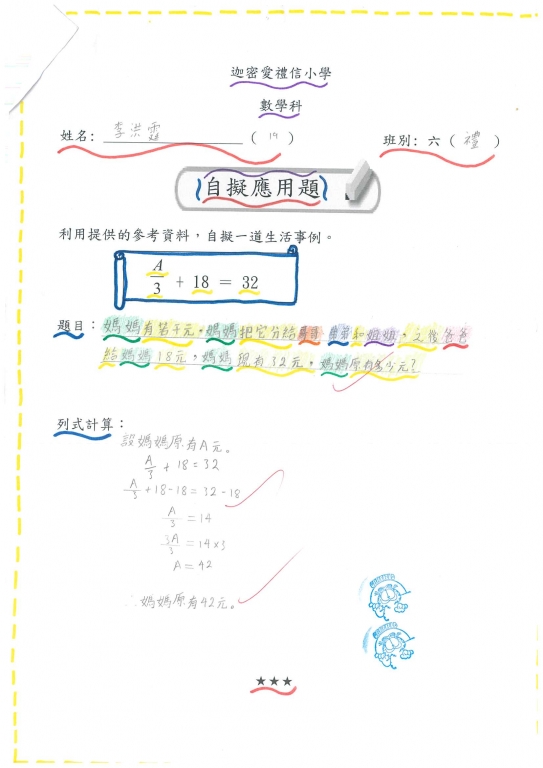 迦密愛禮信小學
數學科
姓名: 李洪霖 ( 19 ) 班別: 六 ( 禮 )
自擬應用題
利用提供的參考資料，自擬一道生活事例。
A/3 + 18 = 32
題目： 媽媽有若干元，媽媽把它分給 和姐姐，之後爸爸
給媽媽18元，媽媽現有32元，媽媽原有多少元？
列式計算：
設媽媽原有A元。
A/3 + 18 = 32
A/3 + 18 - 18 = 32 - 18
A/3 = 14
3A/3 = 14 × 3
A = 42
∴媽媽原有42元。
★★★